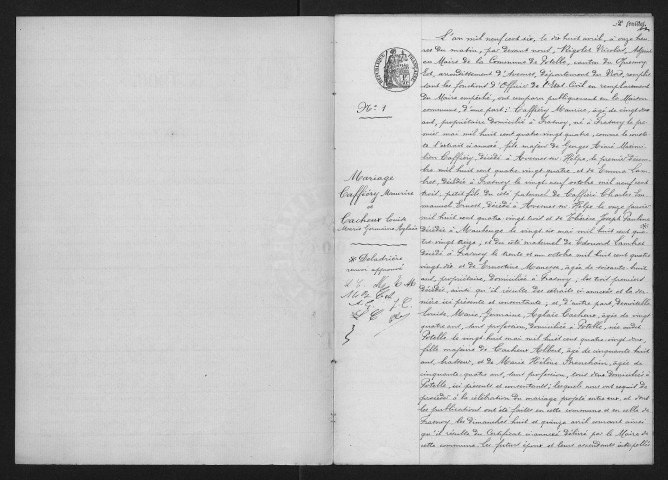 2e feuillet
N° 1
Mariage
Caffiéry Maurice
et
Cacheux Louise
Marie Germaine Aglaé
* Deladrière
renvoi approuvé
L'an mil neuf cent six, le dix huit avril, à onze heu-
res du matin, par devant nous, Rigolet Nicolas, Adjoint
au Maire de la Commune de Potelle, canton du Quesnoy
Est, arrondissement d'Avesnes, département du Nord, remplis-
sant les fonctions d'Officier de l'Etat Civil en remplacement
du Maire empêché, ont comparu publiquement en la Maison
commune, d'une part: Caffiéry Maurice, âgé de vingt deux
ans, propriétaire domicilié à Frasnoy, né à Frasnoy le pre-
mier mai mil huit cent quatre vingt quatre, comme le constate
l'extrait ci annexé, fils majeur de Georges Aimé Maximi-
lien Caffiéry décédé à Avesnes sur Helpe le premier Décem-
bre mil huit cent quatre vingt quatre, et de Emma Cam-
bret, décédée à Frasnoy le vingt neuf octobre mil neuf cent
trois, petit fils du côté paternel de Caffiéri Charles Em-
manuel Ernest, décédé à Avesnes sur Helpe le onze janvier
mil huit cent quatre vingt trois et de Thérèse Joseph Pauline *
décédée à Maubeuge le vingt six mai mil huit cent qua-
tre vingt seize, et du côté maternel de Edouard Cambret
décédé à Frasnoy le trente et un octobre mil huit cent quatre
vingt dix et de Ernestine Manesse, âgée de soixante huit
ans, propriétaire, domiciliée à Frasnoy, les trois premiers
décédés, ainsi qu'il résulte des extraits ci annexés et la der-
nière ici présente et consentante, et, d'autre part, Demoiselle
Louise Marie Germaine Aglaé Cacheux, âgée de vingt
quatre ans, sans profession, domiciliée à Potelle, née audit
Potelle le vingt huit mai mil huit cent quatre vingt deux,
fille majeure de Cacheux Albert, âgé de cinquante huit
ans, brasseur, et de Marie Hélène Franchain, âgée de
cinquante quatre ans, sans profession, tous deux domiciliés à
Potelle, ici présents et consentants; lesquels nous ont requis de
procéder à la célébration du mariage projeté entre eux, et dont
les publications ont été faites en cette commune et en celle de
Frasnoy, les dimanches huit et quinze avril courant ainsi
qu'il résulte du Certificat ci annexé délivré par le Maire de
cette commune. Les futurs époux et leurs ascendants interpellés